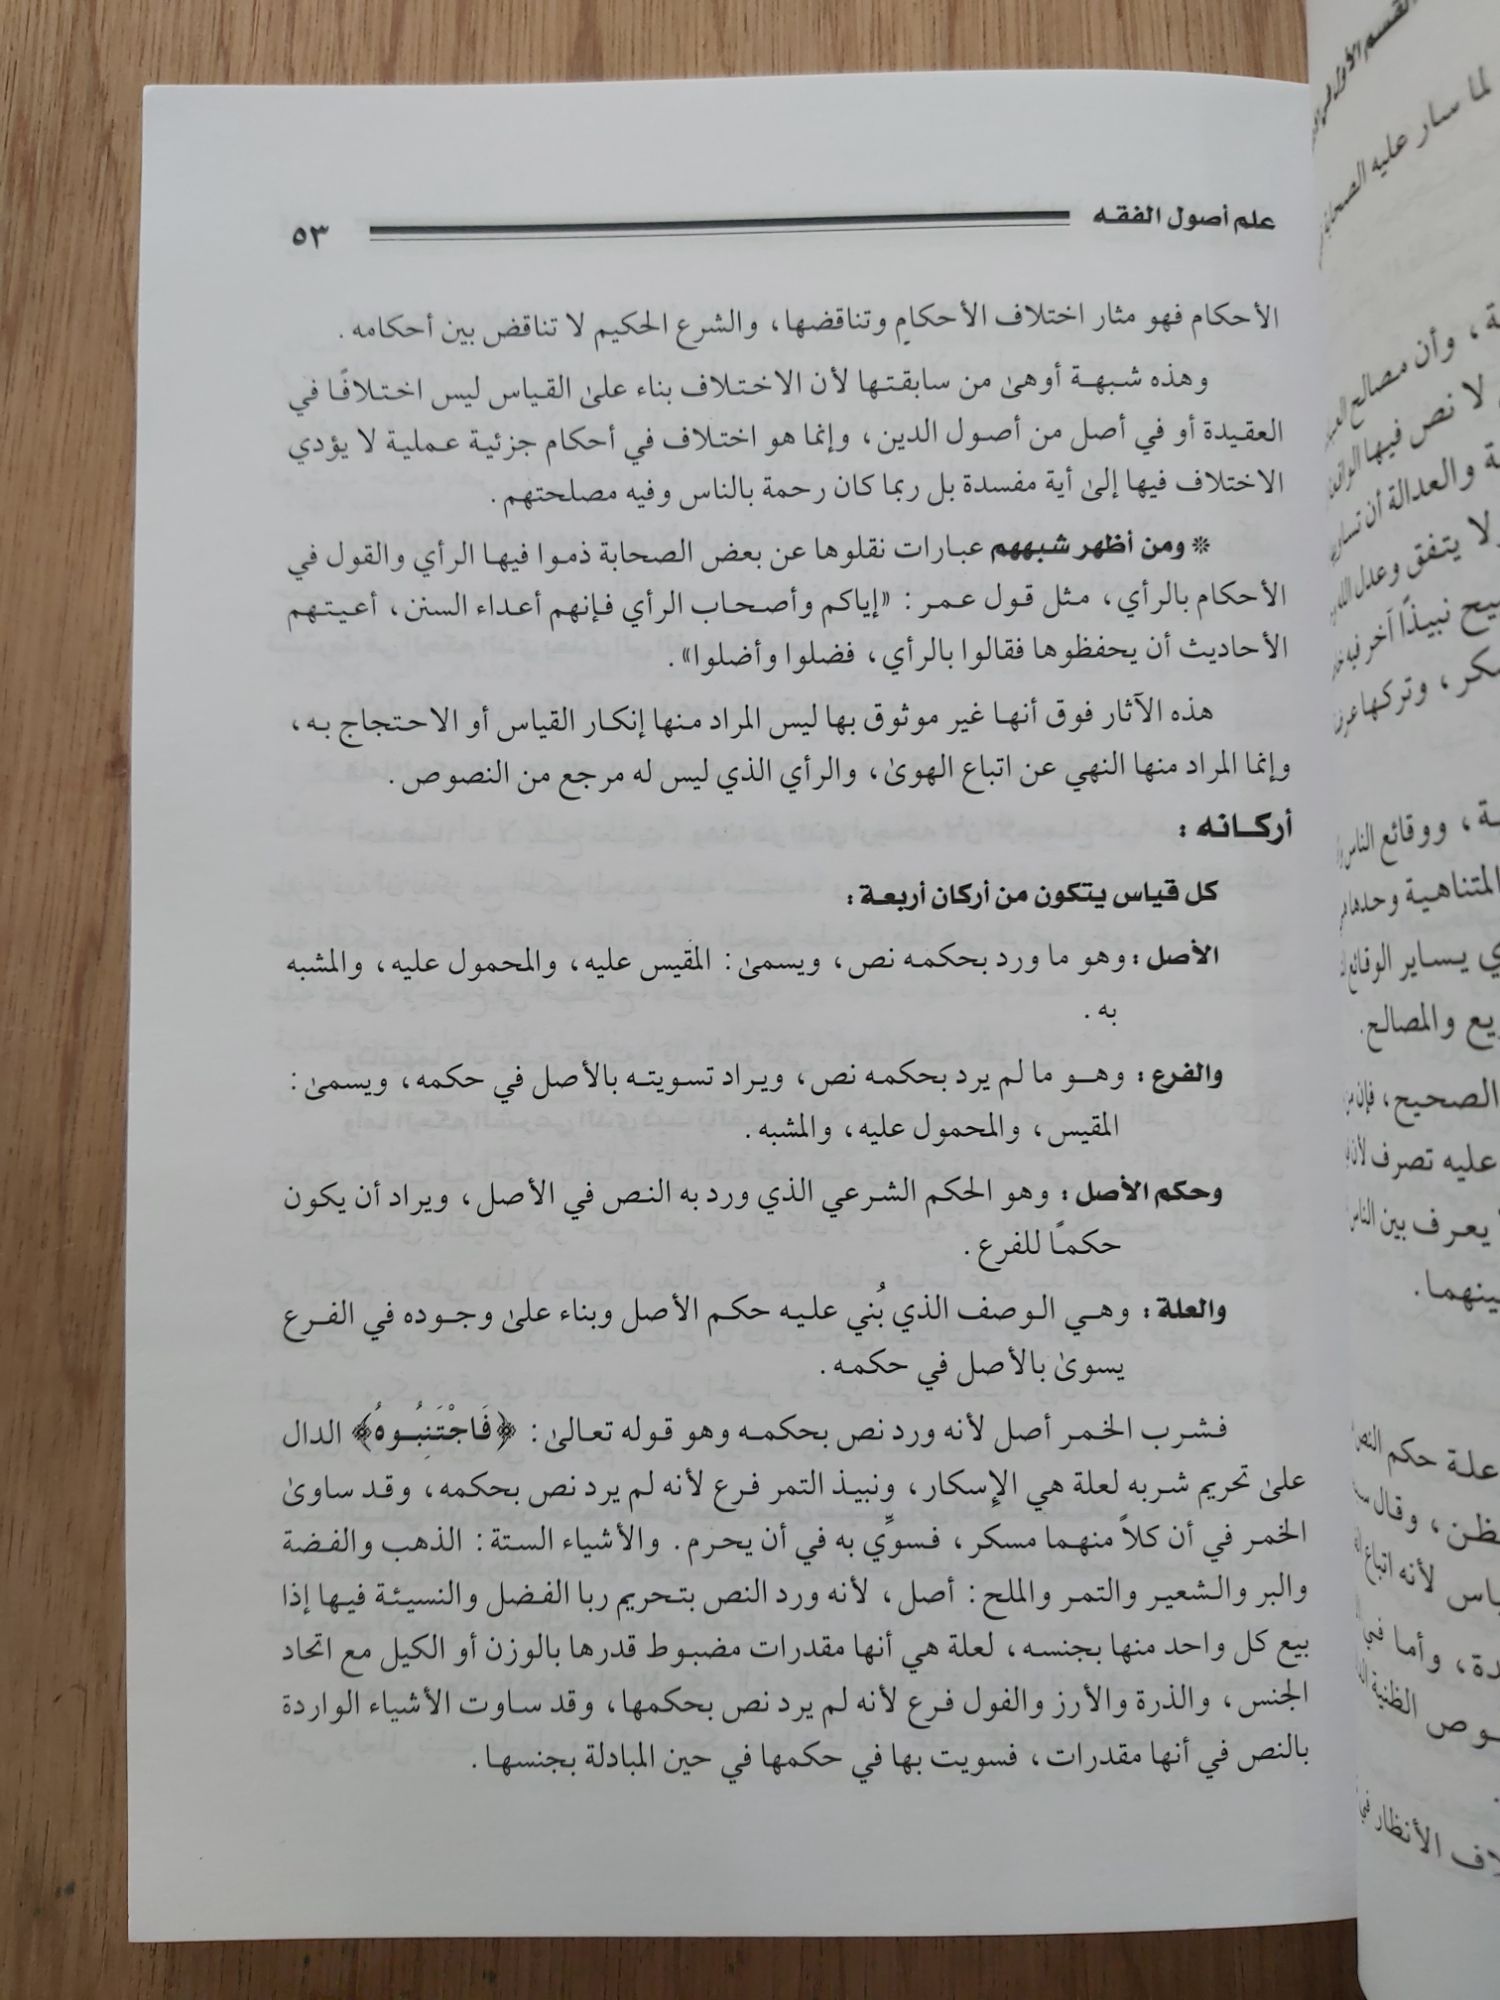 علم أصول الفقه ٥٣
الأحكام فهو مثار اختلاف الأحكام وتناقضها، والشرع الحكيم لا تناقض بين أحكامه.
وهذه شبهة أوهىٰ من سابقتها لأن الاختلاف بناء علىٰ القياس ليس اختلافًا في
العقيدة أو في أصل من أصول الدين، وإنما هو اختلاف في أحكام جزئية عملية لا يؤدي
الاختلاف فيها إلىٰ أية مفسدة بل ربما كان رحمة بالناس وفيه مصلحتهم.
* ومن أظهر شبههم عبارات نقلوها عن بعض الصحابة ذموا فيها الرأي والقول في
الأحكام بالرأي، مثل قول عمر: «إياكم وأصحاب الرأي فإنهم أعداء السنن، أعيتهم
الأحاديث أن يحفظوها فقالوا بالرأي، فضلوا وأضلوا».
هذه الآثار فوق أنها غير موثوق بها ليس المراد منها إنكار القياس أو الاحتجاج به،
وإنما المراد منها النهي عن اتباع الهوىٰ، والرأي الذي ليس له مرجع من النصوص.
أركانه:
كل قياس يتكون من أركان أربعة:
الأصل: وهو ما ورد بحكمه نص، ويسمىٰ: المقيس عليه، والمحمول عليه، والمشبه
به.
والفرع: وهو ما لم يرد بحكمه نص، ويراد تسويته بالأصل في حكمه، ويسمىٰ:
المقيس، والمحمول عليه، والمشبه.
وحكم الأصل: وهو الحكم الشرعي الذي ورد به النص في الأصل، ويراد أن يكون
حكمًا للفرع.
والعلة: وهي الوصف الذي بُني عليه حكم الأصل وبناء علىٰ وجوده في الفرع
يسوىٰ بالأصل في حكمه.
فشرب الخمر أصل لأنه ورد نص بحكمه وهو قوله تعالىٰ: ﴿فَاجْتَنِبُوهُ﴾ الدال
علىٰ تحريم شربه لعلة هي الإسكار، ونبيذ التمر فرع لأنه لم يرد نص بحكمه، وقد ساوىٰ
الخمر في أن كلاً منهما مسكر، فسوِّي به في أن يحرم. والأشياء الستة: الذهب والفضة
والبر والشعير والتمر والملح: أصل، لأنه ورد النص بتحريم ربا الفضل والنسيئة فيها إذا
بيع كل واحد منها بجنسه، لعلة هي أنها مقدرات مضبوط قدرها بالوزن أو الكيل مع اتحاد
الجنس، والذرة والأرز والفول فرع لأنه لم يرد نص بحكمها، وقد ساوت الأشياء الواردة
بالنص في أنها مقدرات، فسويت بها في حكمها في حين المبادلة بجنسها.
لما سار عليه الصحابة
ـة، وأن مصالح
لا نص فيها
ـة والعدالة أن
ولا يتفق وعدل الله
نبيذًا آخر فيه
ـكر، وتركها
ـة، ووقائع الناس
المتناهية وحدها
ي يساير الوقائع
ـع والمصالح.
الصحيح، فإن من
عليه تصرف لأن
يعرف بين الناس
بينهما.
علة حكم النص
ـظن، وقال
ـياس لأنه اتباع
ـدة، وأما في
ـوص الظنية
ـلاف الأنظار في